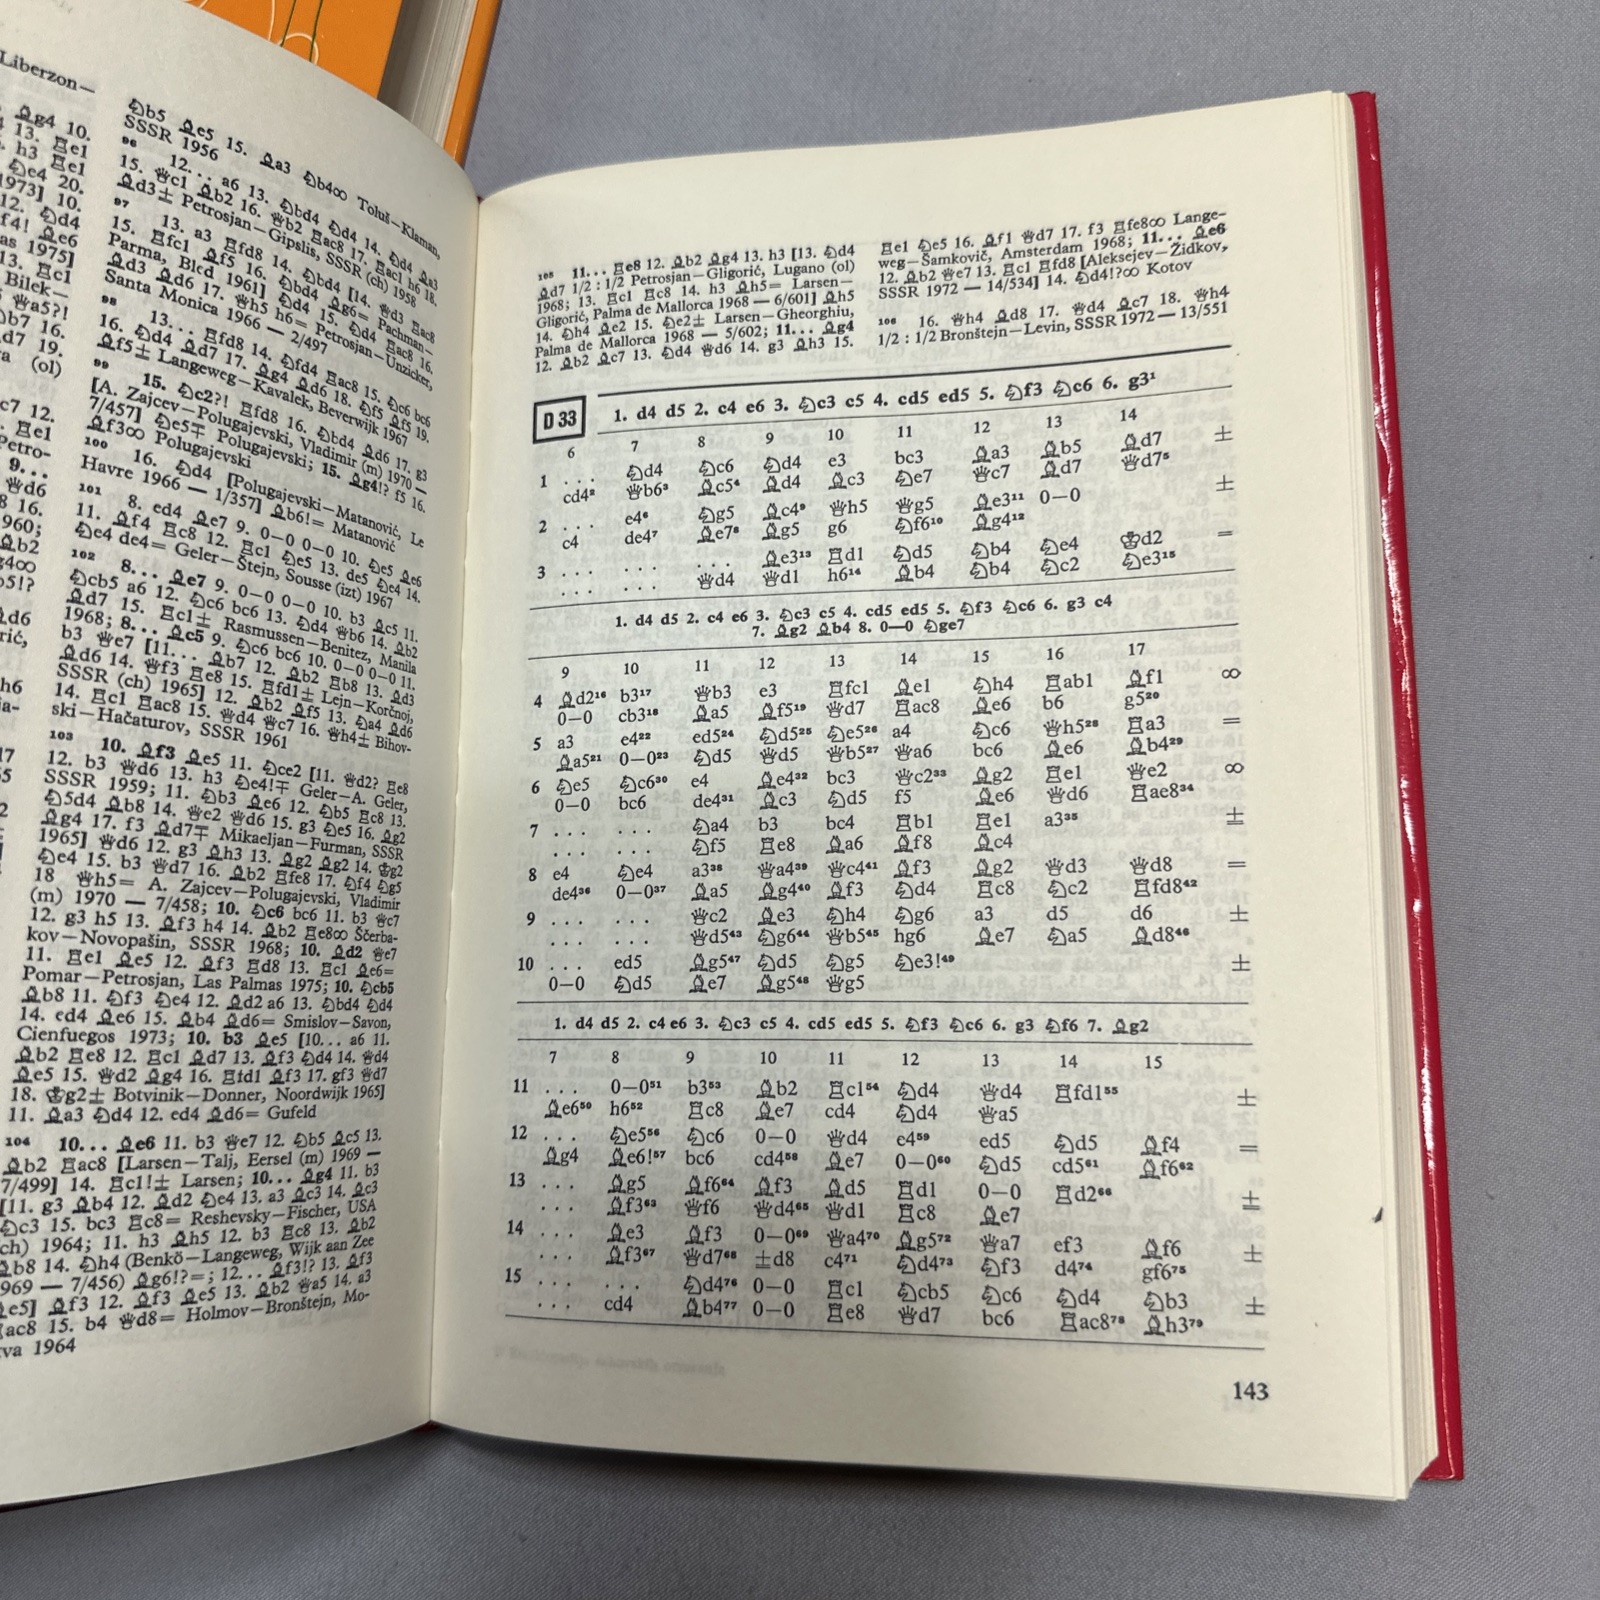 Liberzon—
♗g4 10.
13. ♖e1
h3 ♖e1
♘e4 20.
1973] 10.
12. ♘d4
f4! ♗e6
as 1975]
13. ♖c1
Bilek—
♕a5?!
♗b7 16.
♗d7 19.
(ol)
c7 12.
♖e1
Petro-
9...
♕d6
8 16.
1960;
♗b2
g4∞
b5!?
♗d6
♘b5 ♗e5 15. ♗a3 ♘b4∞ Toluš—Klaman,
SSSR 1956
96 12... a6 13. ♘bd4 ♘d4 14. ♘d4 ♗a3
15. ♕c1 ♗b2 16. ♕b2 ♖ac8 17. ♖ac1 h6 18.
♗d3± Petrosjan—Gipslis, SSSR (ch) 1958
97 13. a3 ♖fd8 14. ♘bd4 [14. ♕d3 ♖ac8
15. ♖fc1 ♗f5 16. ♘bd4 ♗g6= Pachman—
Parma, Bled 1961] ♘d4 15. ♘d4 ♖ac8 16.
♗d3 ♗d6 17. ♕h5 h6= Petrosjan—Unzicker,
Santa Monica 1966 — 2/497
98 13... ♖fd8 14. ♘fd4 ♖ac8 15. ♘c6 bc6
16. ♘d4 ♗d7 17. ♗g4 ♗d6 18. ♘f5 ♗f5 19.
♗f5± Langeweg—Kavalek, Beverwijk 1967
99 15. ♘c2?! ♖fd8 16. ♘bd4 ♗d6 17. g3
[A. Zajcev—Polugajevski, Vladimir (m) 1970 —
7/457] ♘e5∓ Polugajevski; 15. ♗g4!? f5 16.
♗f3∞ Polugajevski
100 16. ♘d4 [Polugajevski—Matanović, Le
Havre 1966 — 1/357] ♗b6!= Matanović
101 8. ed4 ♗e7 9. 0—0 0—0 10. ♘e5 ♗e6
11. ♗f4 ♖c8 12. ♖c1 ♘e5 13. de5 ♘e4 14.
♘e4 de4= Geler—Štejn, Sousse (izt) 1967
102 8... ♗e7 9. 0—0 0—0 10. b3 ♗c5 11.
♘cb5 a6 12. ♘c6 bc6 13. ♘d4 ♕b6 14. ♗b2
♗d7 15. ♖c1± Rasmussen—Benitez, Manila
1968; 8... ♗c5 9. ♘c6 bc6 10. 0—0 0—0 11.
b3 ♕e7 [11... ♗b7 12. ♗b2 ♖b8 13. ♗d3
♗d6 14. ♕f3 ♖e8 15. ♖fd1± Lejn—Korčnoj,
SSSR (ch) 1965] 12. ♗b2 ♗f5 13. ♘a4 ♗d6
14. ♖c1 ♖ac8 15. ♕d4 ♕c7 16. ♕h4± Bihov-
ski—Hačaturov, SSSR 1961
103 10. ♗f3 ♗e5 11. ♘ce2 [11. ♕d2? ♖e8
12. b3 ♕d6 13. h3 ♘e4!∓ Geler—A. Geler,
SSSR 1959; 11. ♘b3 ♗e6 12. ♘b5 ♖c8 13.
♘5d4 ♗b8 14. ♕e2 ♕d6 15. g3 ♘e5 16. ♗g2
♗g4 17. f3 ♗d7∓ Mikaeljan—Furman, SSSR
1965] ♕d6 12. g3 ♗h3 13. ♗g2 ♗g2 14. ♔g2
♘e4 15. b3 ♕d7 16. ♗b2 ♖fe8 17. ♘f4 ♘g5
18 ♕h5= A. Zajcev—Polugajevski, Vladimir
(m) 1970 — 7/458; 10. ♘c6 bc6 11. b3 ♕c7
12. g3 h5 13. ♗f3 h4 14. ♗b2 ♖e8∞ Ščerba-
kov—Novopašin, SSSR 1968; 10. ♗d2 ♕e7
11. ♖e1 ♗e5 12. ♗f3 ♖d8 13. ♖c1 ♗e6=
Pomar—Petrosjan, Las Palmas 1975; 10. ♘cb5
♗b8 11. ♘f3 ♘e4 12. ♗d2 a6 13. ♘bd4 ♘d4
14. ed4 ♗e6 15. ♗b4 ♗d6= Smislov—Savon,
Cienfuegos 1973; 10. b3 ♗e5 [10... a6 11.
♗b2 ♖e8 12. ♖c1 ♗d7 13. ♗f3 ♘d4 14. ♕d4
♗e5 15. ♕d2 ♗g4 16. ♖fd1 ♗f3 17. gf3 ♕d7
18. ♔g2± Botvinik—Donner, Noordwijk 1965]
11. ♗a3 ♘d4 12. ed4 ♗d6= Gufeld
104 10... ♗e6 11. b3 ♕e7 12. ♘b5 ♗c5 13.
♗b2 ♖ac8 [Larsen—Talj, Eersel (m) 1969 —
7/499] 14. ♖c1!± Larsen; 10... ♗g4 11. b3
[11. g3 ♗b4 12. ♗d2 ♘e4 13. a3 ♗c3 14. ♗c3
♘c3 15. bc3 ♖c8= Reshevsky—Fischer, USA
(ch) 1964; 11. h3 ♗h5 12. b3 ♖c8 13. ♗b2
♗b8 14. ♘h4 (Benkö—Langeweg, Wijk aan Zee
1969 — 7/456) ♗g6!?=; 12... ♗f3!? 13. ♗f3
♗e5] ♗f3 12. ♗f3 ♗e5 13. ♗b2 ♕a5 14. a3
♖ac8 15. b4 ♕d8= Holmov—Bronštejn, Mo-
va 1964
105 11... ♖e8 12. ♗b2 ♗g4 13. h3 [13. ♘d4
♗d7 1/2 : 1/2 Petrosjan—Gligorić, Lugano (ol)
1968; 13. ♖c1 ♖c8 14. h3 ♗h5= Larsen—
Gligorić, Palma de Mallorca 1968 — 6/601] ♗h5
14. ♘h4 ♗e2 15. ♘e2± Larsen—Gheorghiu,
Palma de Mallorca 1968 — 5/602; 11... ♗g4
12. ♗b2 ♗c7 13. ♘d4 ♕d6 14. g3 ♗h3 15.
♖e1 ♘e5 16. ♗f1 ♕d7 17. f3 ♖fe8∞ Lange-
weg—Šamkovič, Amsterdam 1968; 11... ♗e6
12. ♗b2 ♕e7 13. ♖c1 ♖fd8 [Aleksejev—Židkov,
SSSR 1972 — 14/534] 14. ♘d4!?∞ Kotov
106 16. ♕h4 ♗d8 17. ♕d4 ♗c7 18. ♕h4
1/2 : 1/2 Bronštejn—Levin, SSSR 1972 — 13/551
D 33 1. d4 d5 2. c4 e6 3. ♘c3 c5 4. cd5 ed5 5. ♘f3 ♘c6 6. g3¹
6 7 8 9 10 11 12 13 14
1 ... ♘d4 ♘c6 ♘d4 e3 bc3 ♗a3 ♗b5 ♗d7 ±
cd4² ♕b6³ ♗c5⁴ ♗d4 ♗c3 ♘e7 ♕c7 ♗d7 ♕d7⁵
2 ... e4⁶ ♘g5 ♗c4⁹ ♕h5 ♕g5 ♗e3¹¹ 0—0 ±
c4 de4⁷ ♗e7⁸ ♗g5 g6 ♘f6¹⁰ ♗g4¹²
3 ... ... ... ♗e3¹³ ♖d1 ♘d5 ♘b4 ♘e4 ♔d2 =
... ... ♕d4 ♕d1 h6¹⁴ ♗b4 ♘b4 ♘c2 ♘e3¹⁵
1. d4 d5 2. c4 e6 3. ♘c3 c5 4. cd5 ed5 5. ♘f3 ♘c6 6. g3 c4
7. ♗g2 ♗b4 8. 0—0 ♘ge7
9 10 11 12 13 14 15 16 17
4 ♗d2¹⁶ b3¹⁷ ♕b3 e3 ♖fc1 ♗e1 ♘h4 ♖ab1 ♗f1 ∞
0—0 cb3¹⁸ ♗a5 ♗f5¹⁹ ♕d7 ♖ac8 ♗e6 b6 g5²⁰
5 a3 e4²² ed5²⁴ ♘d5²⁵ ♘e5²⁶ a4 ♘c6 ♕h5²⁸ ♖a3 =
♗a5²¹ 0—0²³ ♘d5 ♕d5 ♕b5²⁷ ♕a6 bc6 ♗e6 ♗b4²⁹
6 ♘e5 ♘c6³⁰ e4 ♗e4³² bc3 ♕c2³³ ♗g2 ♖e1 ♕e2 ∞
0—0 bc6 de4³¹ ♗c3 ♘d5 f5 ♗e6 ♕d6 ♖ae8³⁴
7 ... ... ♘a4 b3 bc4 ♖b1 ♖e1 a3³⁵ ±
... ... ♘f5 ♖e8 ♗a6 ♗f8 ♗c4
8 e4 ♘e4 a3³⁸ ♕a4³⁹ ♕c4⁴¹ ♗f3 ♗g2 ♕d3 ♕d8 =
de4³⁶ 0—0³⁷ ♗a5 ♗g4⁴⁰ ♗f3 ♘d4 ♖c8 ♘c2 ♖fd8⁴²
9 ... ... ♕c2 ♗e3 ♘h4 ♘g6 a3 d5 d6 ±
... ... ♕d5⁴³ ♘g6⁴⁴ ♕b5⁴⁵ hg6 ♗e7 ♘a5 ♗d8⁴⁶
10 ... ed5 ♗g5⁴⁷ ♘d5 ♘g5 ♘e3!⁴⁹ ±
0—0 ♘d5 ♗e7 ♗g5⁴⁸ ♕g5
1. d4 d5 2. c4 e6 3. ♘c3 c5 4. cd5 ed5 5. ♘f3 ♘c6 6. g3 ♘f6 7. ♗g2
7 8 9 10 11 12 13 14 15
11 ... 0—0⁵¹ b3⁵³ ♗b2 ♖c1⁵⁴ ♘d4 ♕d4 ♖fd1⁵⁵ ±
♗e6⁵⁰ h6⁵² ♖c8 ♗e7 cd4 ♘d4 ♕a5
12 ... ♘e5⁵⁶ ♘c6 0—0 ♕d4 e4⁵⁹ ed5 ♘d5 ♗f4 =
♗g4 ♗e6!⁵⁷ bc6 cd4⁵⁸ ♗e7 0—0⁶⁰ ♘d5 cd5⁶¹ ♗f6⁶²
13 ... ♗g5 ♗f6⁶⁴ ♗f3 ♗d5 ♖d1 0—0 ♖d2⁶⁶ ±
... ♗f3⁶³ ♕f6 ♕d4⁶⁵ ♕d1 ♖c8 ♗e7
14 ... ♗e3 ♗f3 0—0⁶⁹ ♕a4⁷⁰ ♗g5⁷² ♕a7 ef3 ♗f6 ±
... ♗f3⁶⁷ ♕d7⁶⁸ ±d8 c4⁷¹ ♘d4⁷³ ♘f3 d4⁷⁴ gf6⁷⁵
15 ... ... ♘d4⁷⁶ 0—0 ♖c1 ♘cb5 ♘c6 ♘d4 ♘b3 ±
... cd4 ♗b4⁷⁷ 0—0 ♖e8 ♕d7 bc6 ♖ac8⁷⁸ ♗h3⁷⁹
143